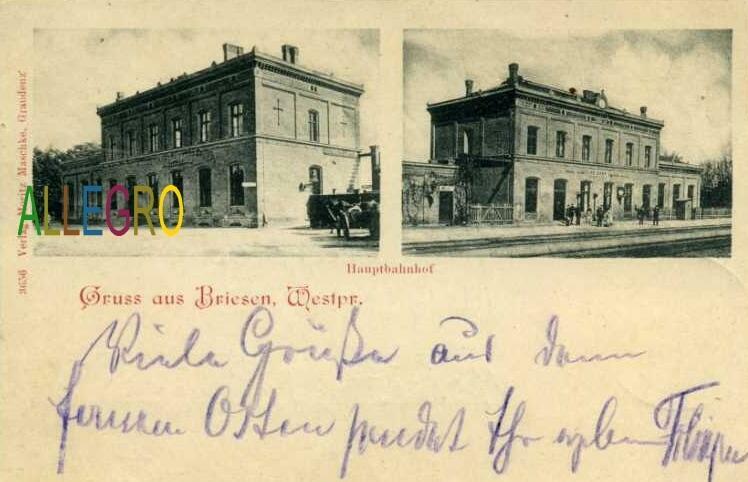 3656 Verlag Moritz Maschke, Graudenz
ALLEGRO
Hauptbahnhof
Gruss aus Briesen, Westpr.
Viele Grüße aus dem
fernen Osten sendet Ihr